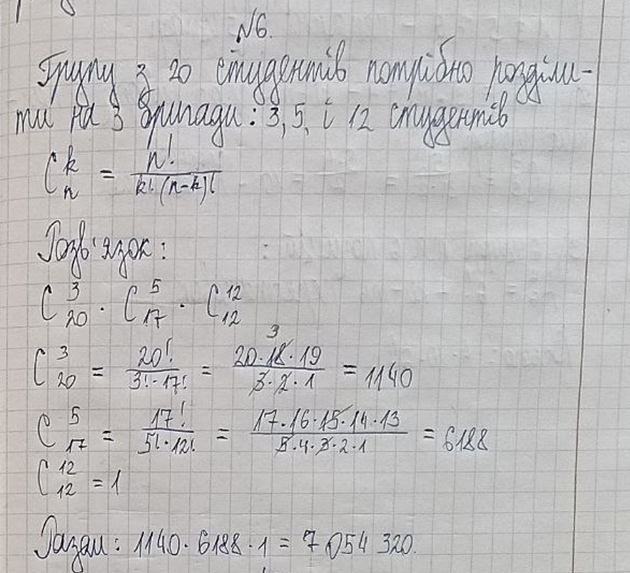 №6.
Групу з 20 студентів потрібно розділи-
ти на 3 бригади: 3, 5, і 12 студентів
C_n^k = n! / k!·(n-k)!
Розв'язок:
C_20^3 · C_17^5 · C_12^12
C_20^3 = 20! / 3!·17! = 20·18·19 / 3·2·1 = 1140
3
C_17^5 = 17! / 5!·12! = 17·16·15·14·13 / 5·4·3·2·1 = 6188
C_12^12 = 1
Разом: 1140·6188·1 = 7 054 320.